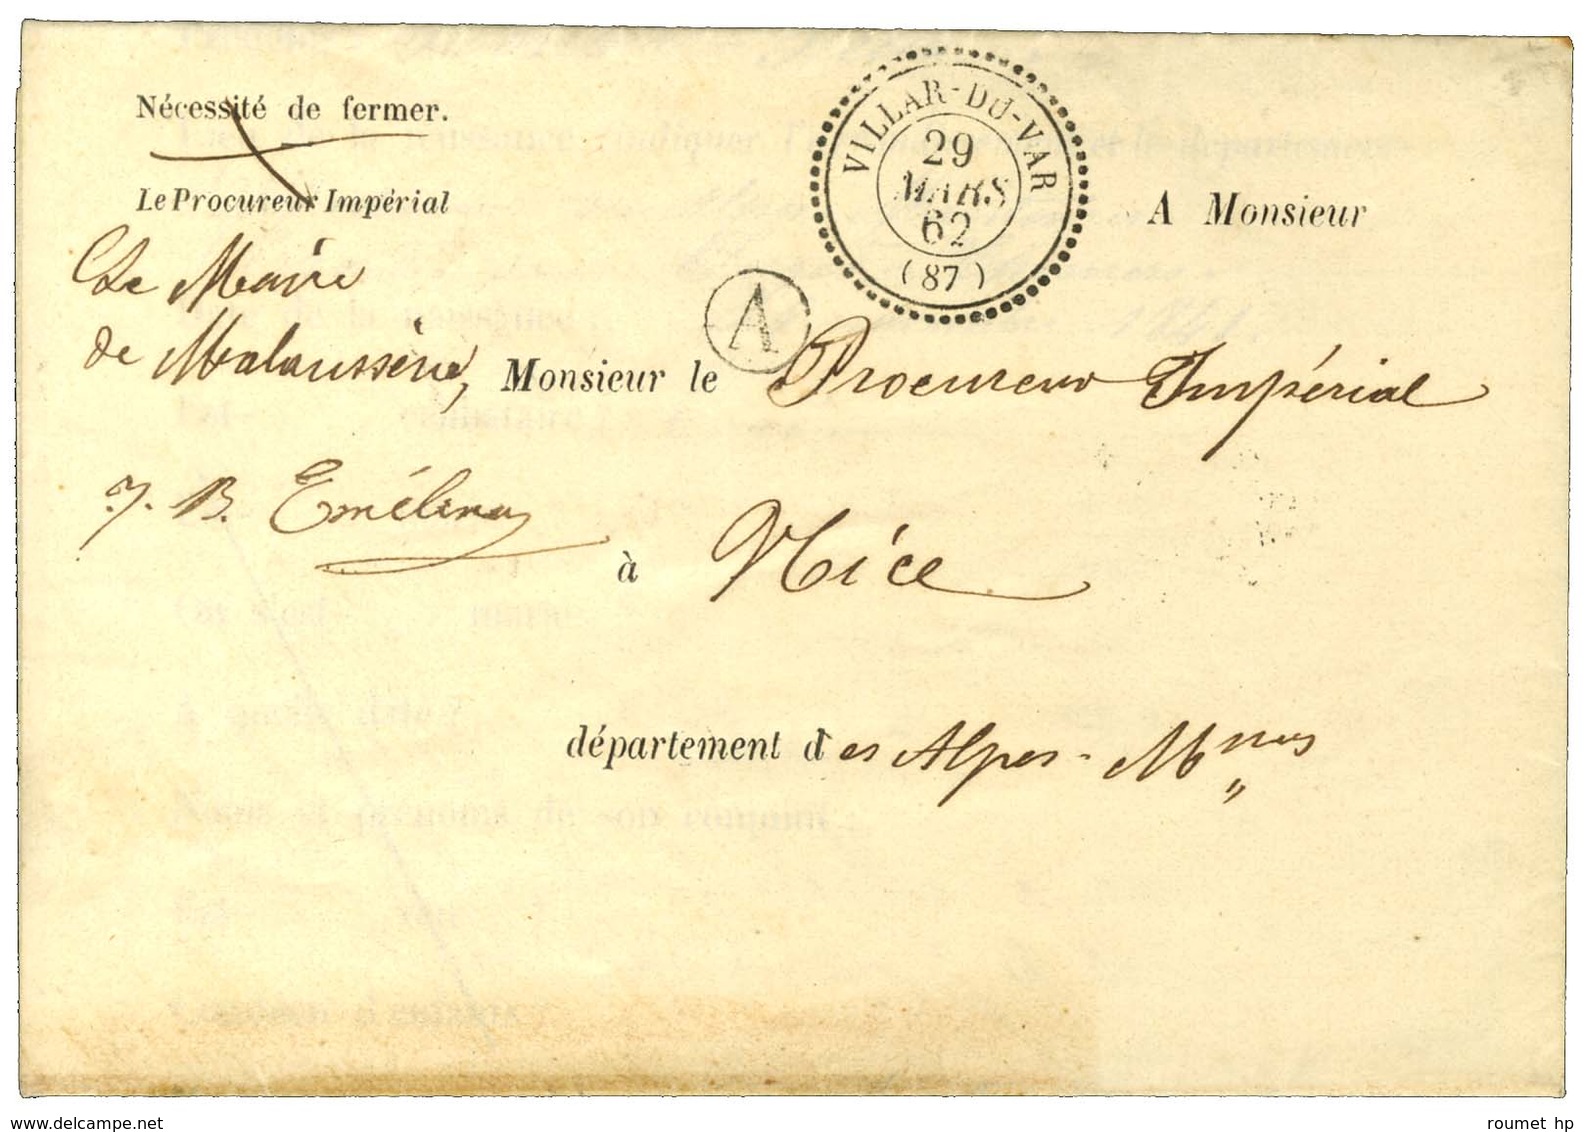 VILLAR-DU-VAR
29
MARS
62
(87)
Nécessité de fermer.
Le Procureur Impérial
A Monsieur
Le Maire
de Malaussène,
A
Monsieur le Procureur Impérial
J. B.
à Nice
département des Alpes-Mmes
roumet hp